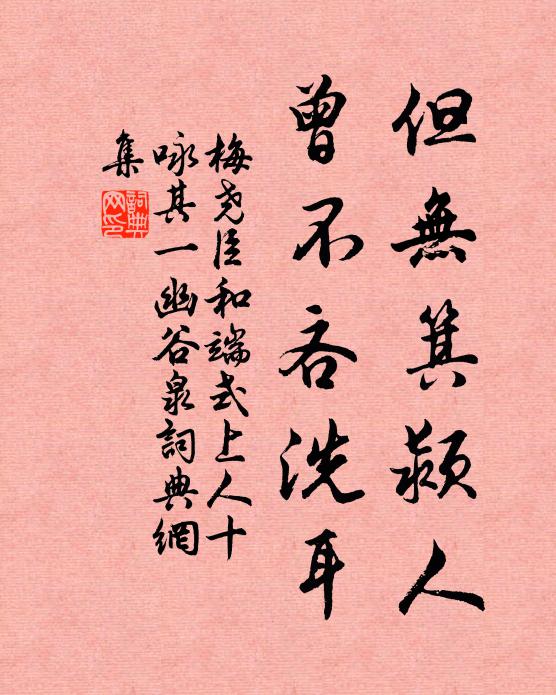 但無箕颍人
曾不吝洗耳
梅尧臣和端式上人十
咏其一幽谷泉詞典網
集
詞典
网印